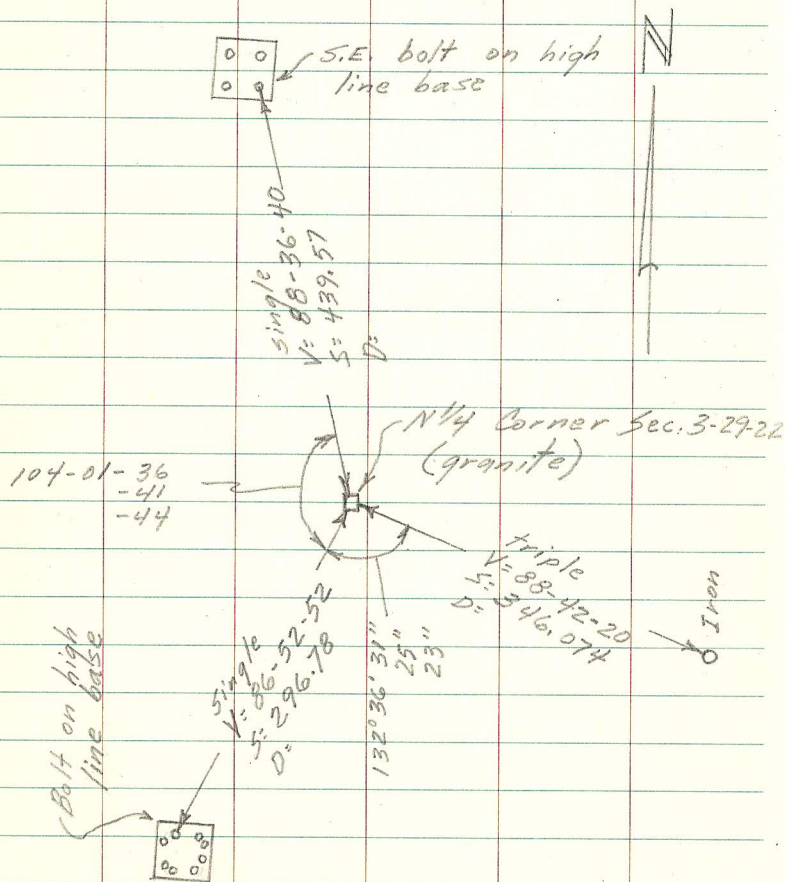 N
S.E. bolt on high
line base
single
V= 88-36-40
S= 439.57
D=
N 1/4 Corner Sec. 3-29-22
(granite)
104-01-36
-41
-44
triple
V= 88-42-20
D= 346.074
Iron
single
V= 86-52-52
S= 296.78
D=
132° 36' 31"
25"
23"
Bolt on high
line base